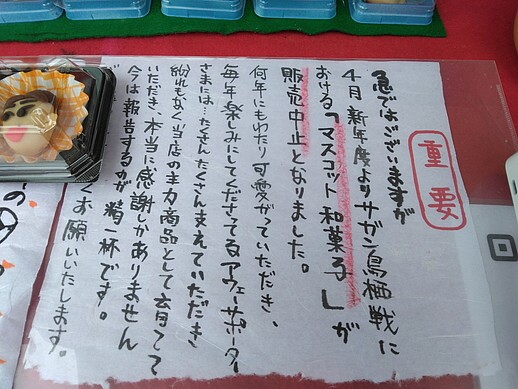 重要
急ではございますが
4月新年度よりサガン鳥栖戦に
おける「マスコット和菓子」が
販売中止となりました。
何年にもわたり可愛がっていただき、
毎年楽しみにしてくださってるアウェーサポーター
さまには…たくさんたくさん支えていただき
紛れもなく当店の主力商品として育てて
いただき、本当に感謝しかありません
今は報告するのが精一杯です。
くお願いいたします。